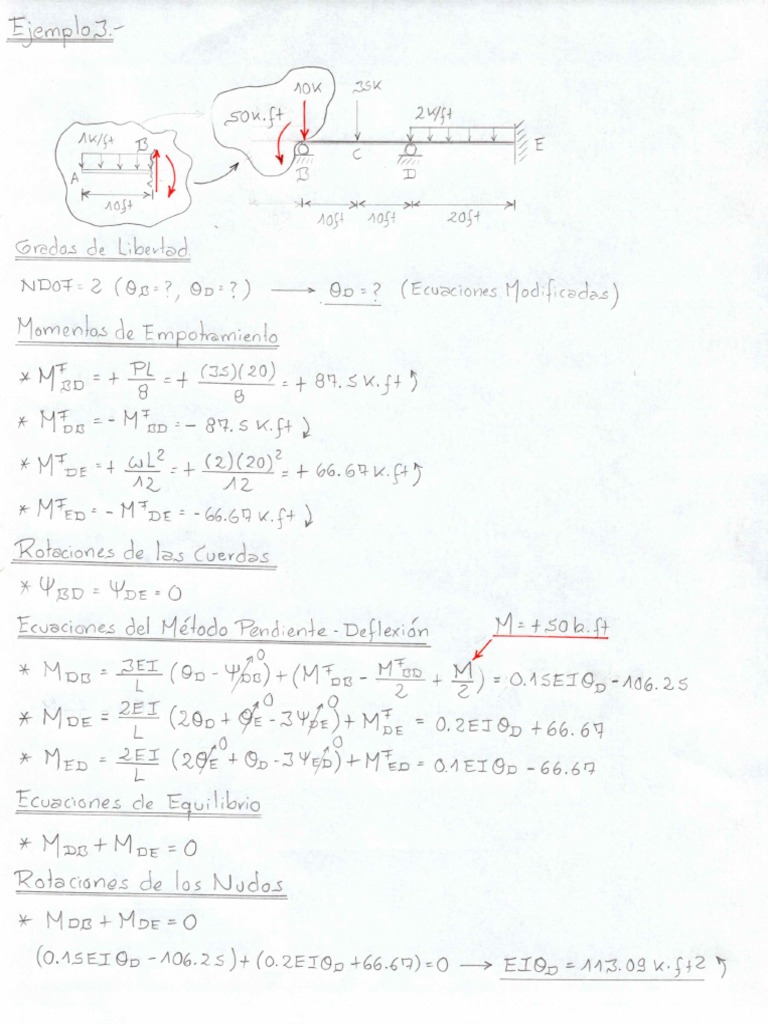 Ejemplo 3.-
10K
35K
50K.ft
2K/ft
1K/ft
B
A
10ft
B
C
D
E
10ft
10ft
20ft
Grados de Libertad
NDOF = 2 (θB = ?, θD = ?) → θD = ? (Ecuaciones Modificadas)
Momentos de Empotramiento
* M^F_BD = + PL/8 = + (35)(20)/8 = + 87.5 K.ft ↰
* M^F_DB = - M^F_BD = - 87.5 K.ft ⤸
* M^F_DE = + ωL²/12 = + (2)(20)²/12 = + 66.67 K.ft ↰
* M^F_ED = - M^F_DE = - 66.67 K.ft ⤸
Rotaciones de las Cuerdas
* ΨBD = ΨDE = 0
Ecuaciones del Método Pendiente - Deflexión
M = +50 k.ft
* MDB = 3EI/L (θD - ΨDB⁰) + (M^F_DB - M^F_BD/2 + M/2) = 0.15EIθD - 106.25
* MDE = 2EI/L (2θD + θE⁰ - 3ΨDE⁰) + M^F_DE = 0.2EIθD + 66.67
* MED = 2EI/L (2θE⁰ + θD - 3ΨED⁰) + M^F_ED = 0.1EIθD - 66.67
Ecuaciones de Equilibrio
* MDB + MDE = 0
Rotaciones de los Nudos
* MDB + MDE = 0
(0.15EIθD - 106.25) + (0.2EIθD + 66.67) = 0 → EIθD = 113.09 K.ft2 ↰